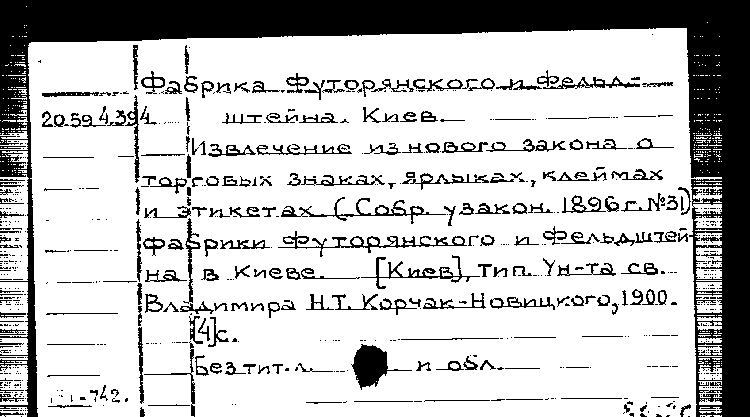 Фабрика Футорянского и Фельд-
20.59.4.394 штейна. Киев.
Извлечение из нового закона о
торговых знаках, ярлыках, клеймах
и этикетах. (Собр. узакон. 1896 г. №31)
фабрики Футорянского и Фельдштей-
на в Киеве. [Киев], тип. Ун-та св.
Владимира Н.Т. Корчак-Новицкого, 1900.
[4] с.
Без тит. л. и обл.
-742.